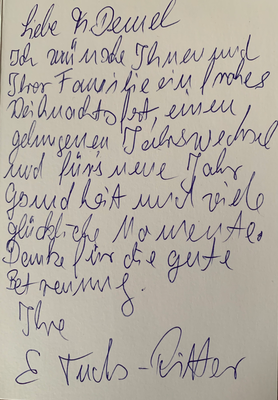 Liebe Fr. Demel
Ich wünsche Ihnen und
Ihrer Familie ein frohes
Weihnachtsfest, einen
gelungenen Jahrswechsel
und fürs neue Jahr
Gesundheit und viele
glückliche Momente.
Danke für die gute
Betreuung.
Ihre
E Fuchs-Ritter